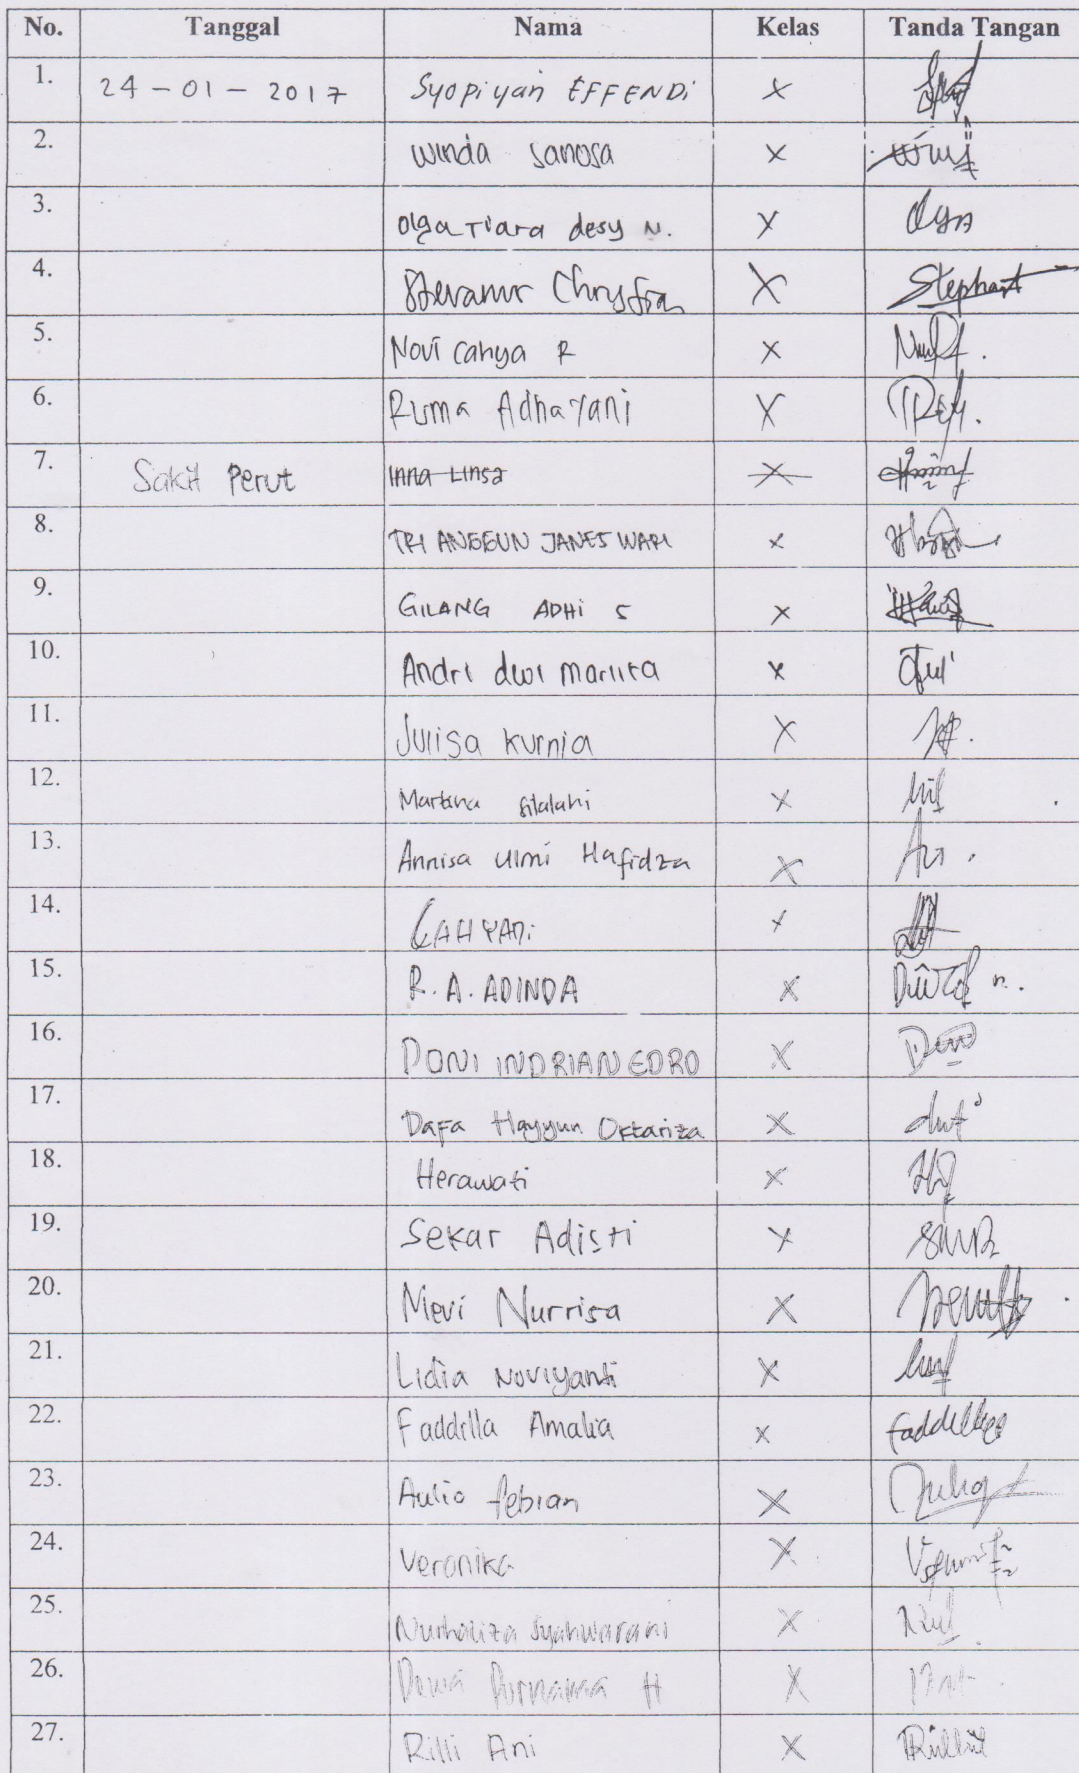 No. Tanggal Nama Kelas Tanda Tangan
1. 24-01-2017 Syopiyan EFFENDi X
2. Winda Sanosa X
3. Olga Tiara desy N. X Olga
4. Stevanus Chrystian X Stephant
5. Novi Cahya R X
6. Ruma Adhayani X
7. Sakit Perut Inna Linsa X
8. TRI ANGGUN JANESWARI X
9. GILANG ADHi S X
10. Andri dwi X
11. Julisa Kurnia X
12. Martina Silalahi X
13. Annisa Ulmi Hafidza X
14. CAHYANi X
15. R.A. ADINDA X
16. DONI INDRIAN EDRO X
17. Dafa Hayyun Oktariza X
18. Herawati X
19. Sekar Adisti X
20. Nievi Nurrisa X
21. Lidia Noviyanti X
22. Faddilla Amalia X
23. Aulio febrian X
24. Veronika X
25. Nurhaliza Syahwarani X
26. Dewa Purnama H X
27. Rilli Ani X